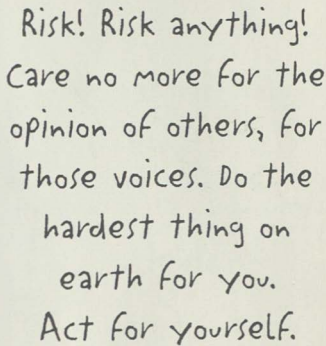 Risk! Risk anything!
Care no more for the
opinion of others, for
those voices. Do the
hardest thing on
earth for you.
Act for yourself.